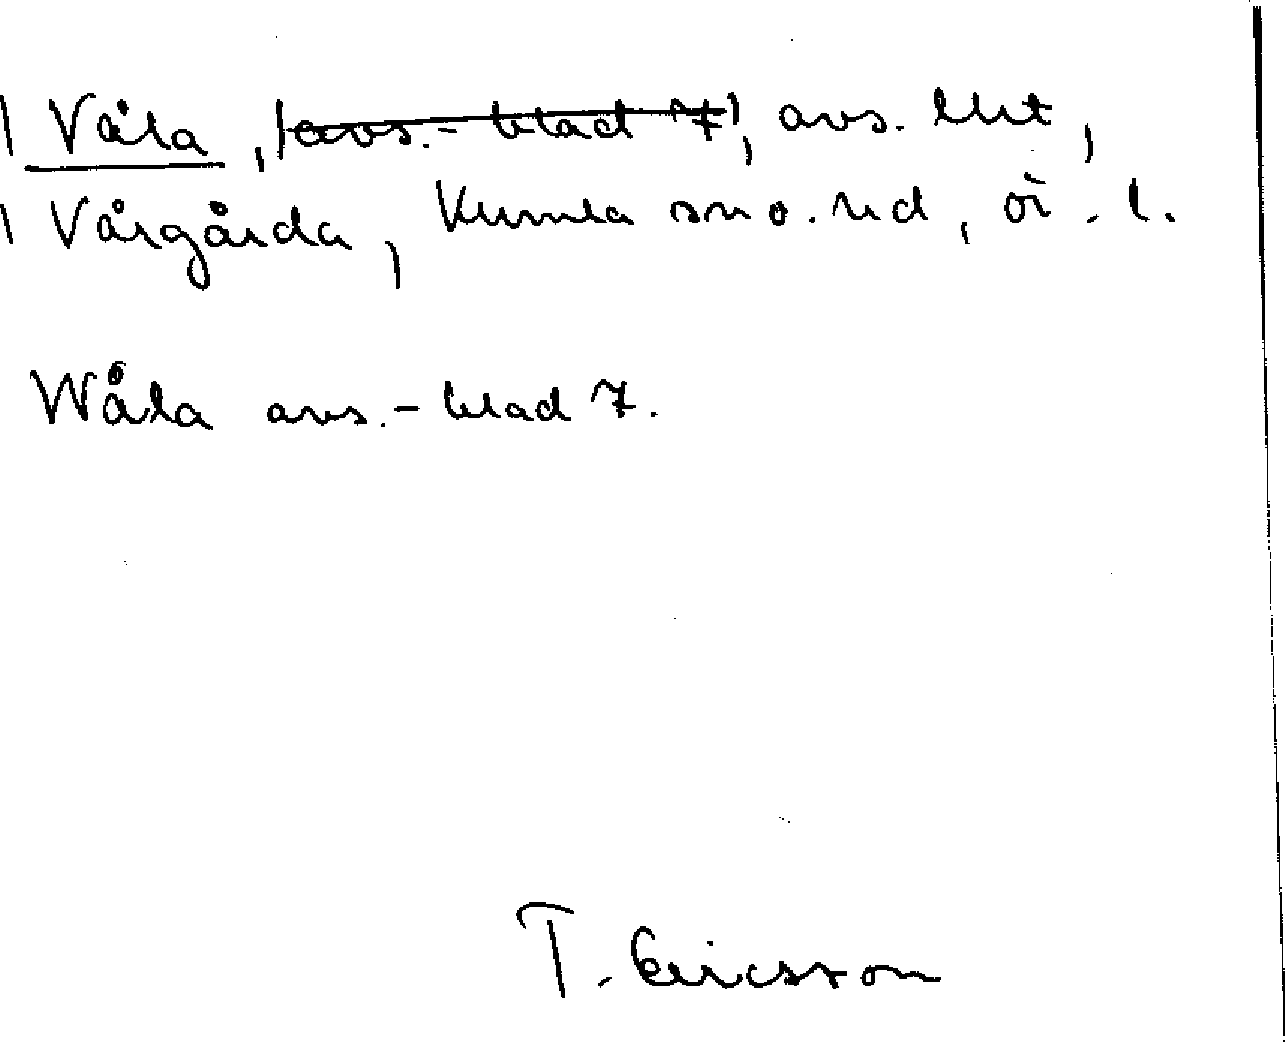 Våla, avs.-blad 7, avs. lht,
Vårgårda, Kumla sn o. hd, ör. l.
Wåla avs.-blad 7.
T. Ericsson